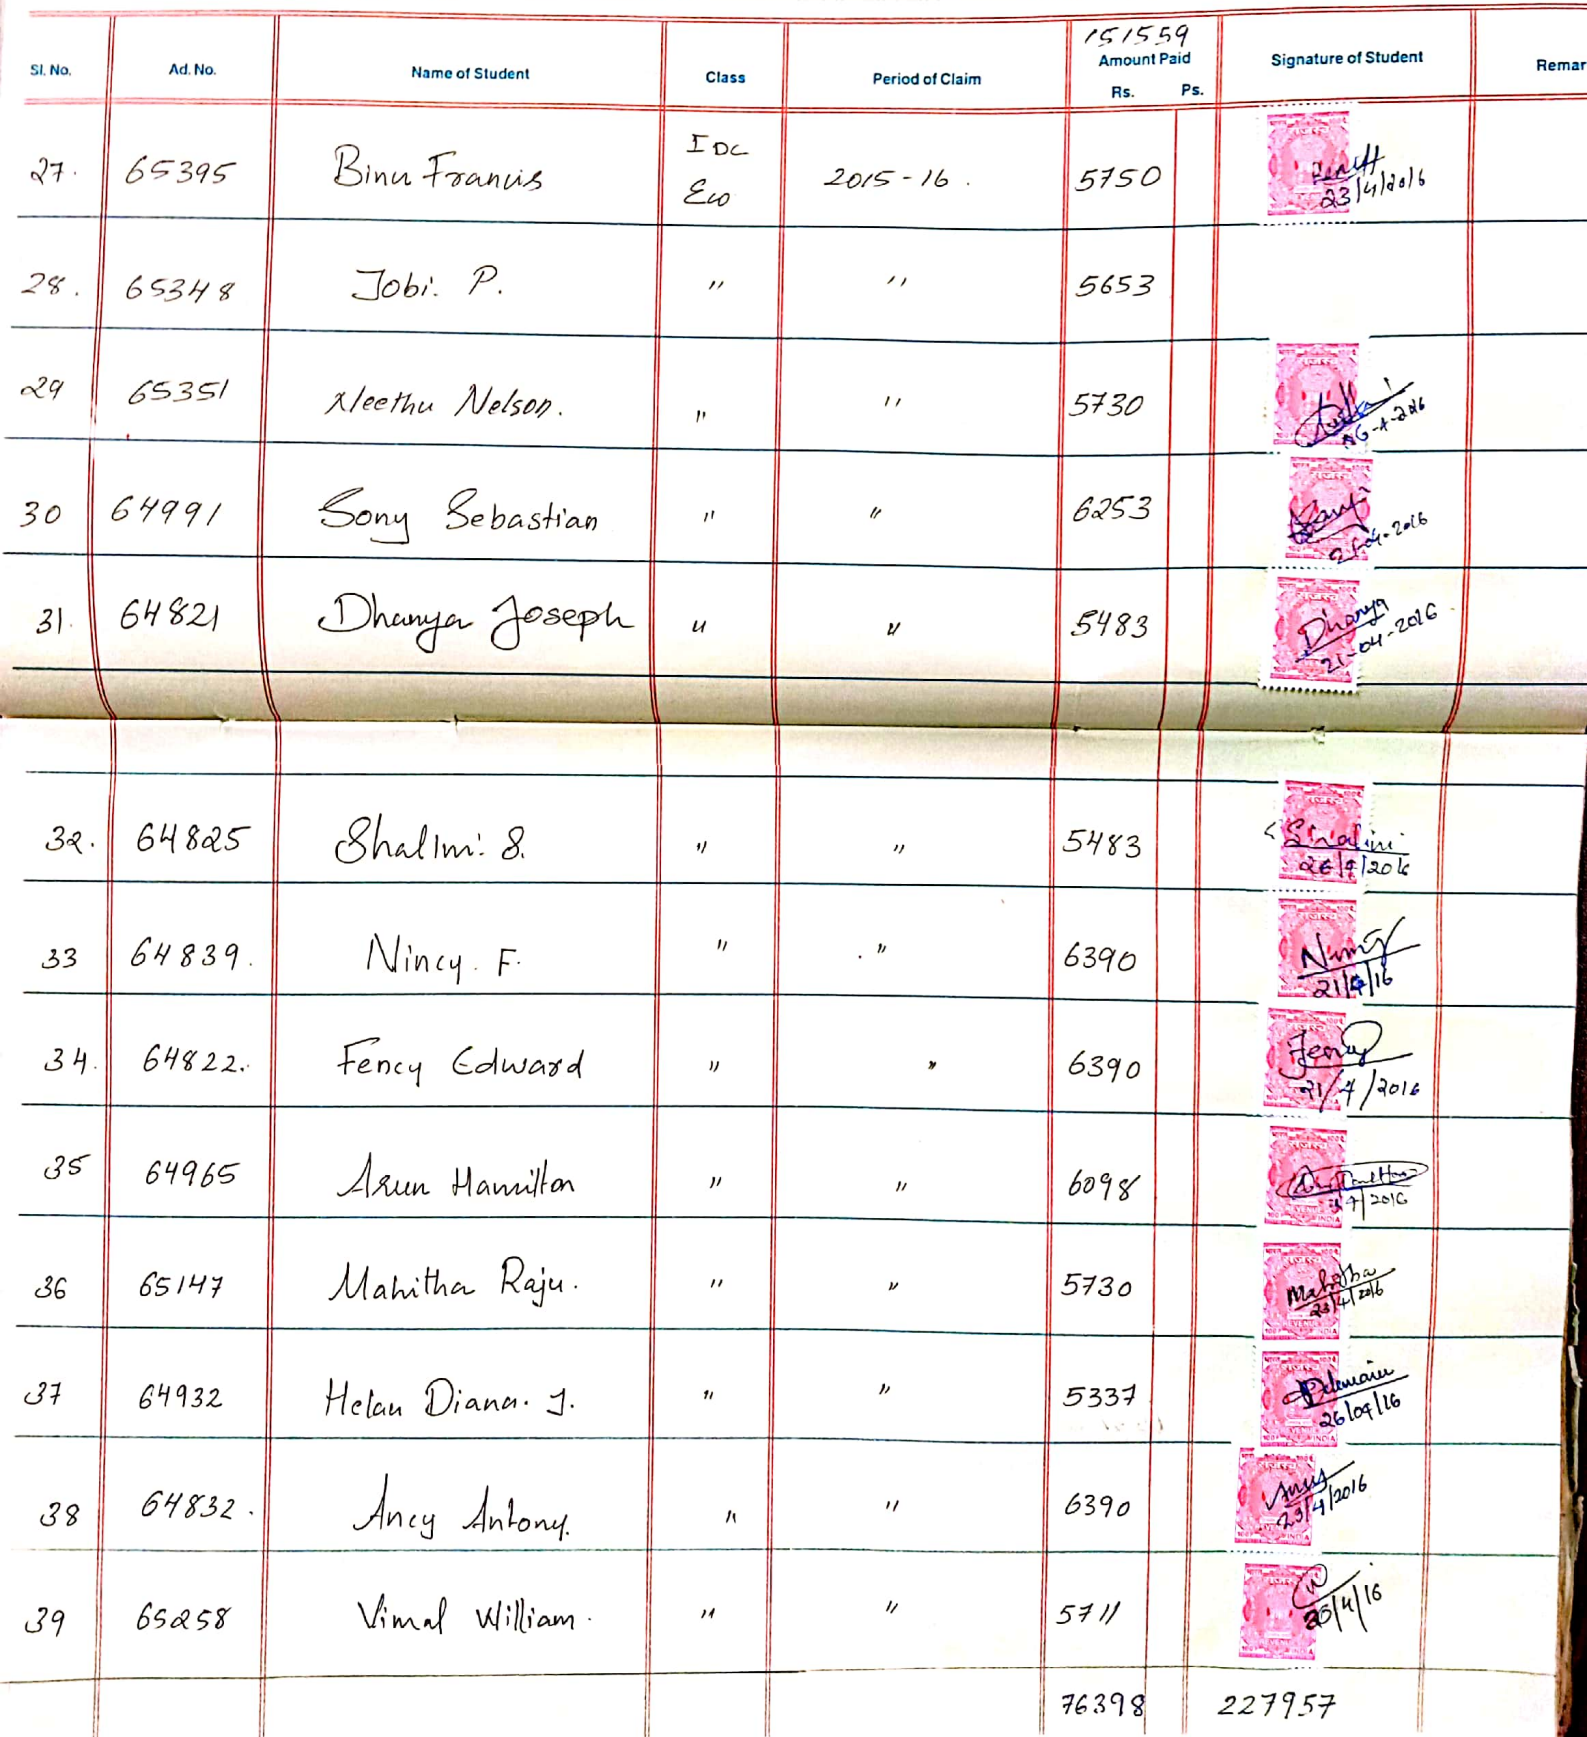 151559
Sl. No. Ad. No. Name of Student Class Period of Claim Amount Paid Signature of Student Remar
Rs. Ps.
27. 65395 Binu Francis I DC Eco 2015-16. 5750 23/4/2016
28. 65348 Jobi. P. " " 5653
29 65351 Neethu Nelson. " " 5730 26-4-2016
30 64991 Sony Sebastian " " 6253 21-04-2016
31. 64821 Dhanya Joseph " " 5483 Dhanya 21-04-2016
32. 64825 Shalini. S. " " 5483 Shalini 26/4/2016
33 64839. Nincy. F. " " 6390 Nincy 21/4/16
34. 64822. Fency Edward " " 6390 Fency 21/4/2016
35 64965 Arun Hamilton " " 6098 4/2016
36 65147 Mahitha Raju. " " 5730 Mahitha 23/4/2016
37 64932 Helan Diana. J. " " 5337 26/04/16
38 64832. Ancy Antony. " " 6390 Ancy 23/4/2016
39 65258 Vimal William. " " 5711 26/4/16
76398 227957